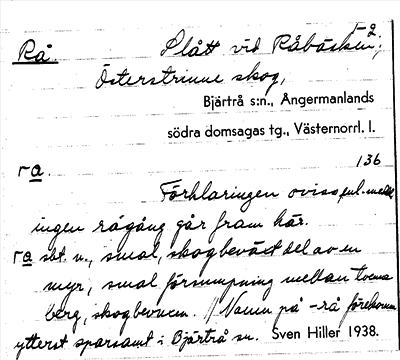 Rå. Slått vid Råbäcken,
Österstrinne skog,
Bjärtrå s:n., Ångermanlands
södra domsagas tg., Västernorrl. l.
136
ra.
Förklaringen oviss, enl. medd.
ingen rågång går fram här.
ra sbt. n., smal, skogbeväxt del av en
myr, smal försumpning mellan tvenne
berg, skogbevuxen. // Namn på -rå förekomm
ytterst sparsamt i Bjärtrå sn. Sven Hiller 1938.